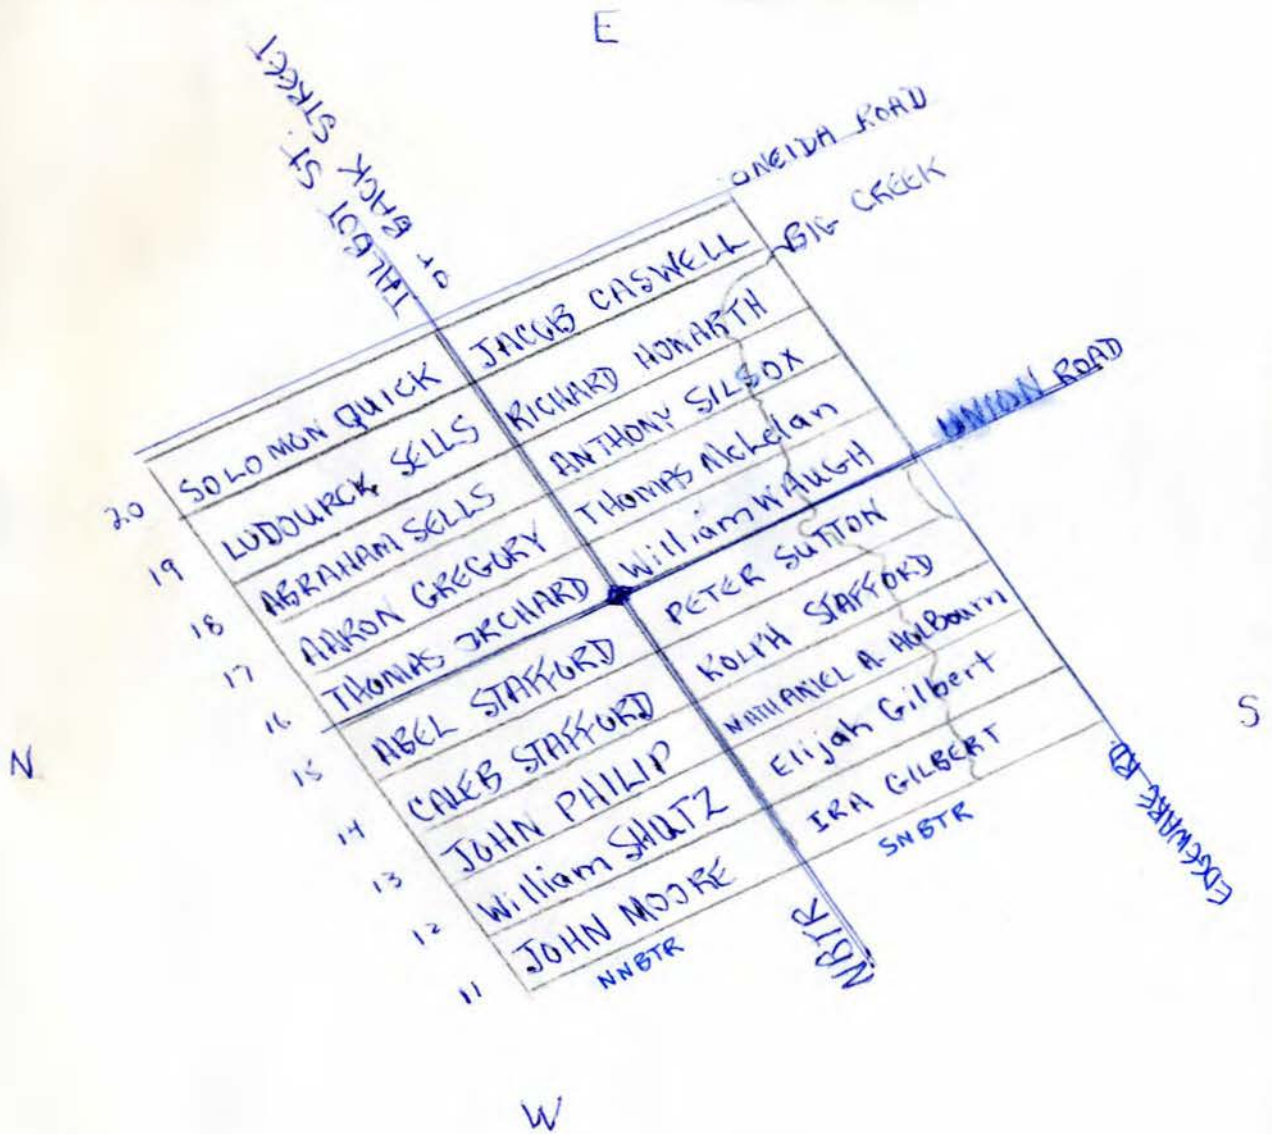 E
TALBOT ST.
or BACK STREET
ONEIDA ROAD
BIG CREEK
UNION ROAD
EDGEWARE RD
N
S
20
SOLOMON QUICK
JACOB CASWELL
19
LUDOURCK SELLS
RICHARD HOWARTH
18
ABRAHAM SELLS
ANTHONY SILSOX
17
AARON GREGORY
THOMAS McLelan
16
THOMAS ORCHARD
William WAUGH
15
ABEL STAFFORD
PETER SUTTON
14
CALEB STAFFORD
ROLPH STAFFORD
13
JOHN PHILIP
NATHANIEL A. HOLBourn
12
William SHUTZ
Elijah Gilbert
11
JOHN MOORE
IRA GILBERT
NNBTR
SNBTR
NBTR
W